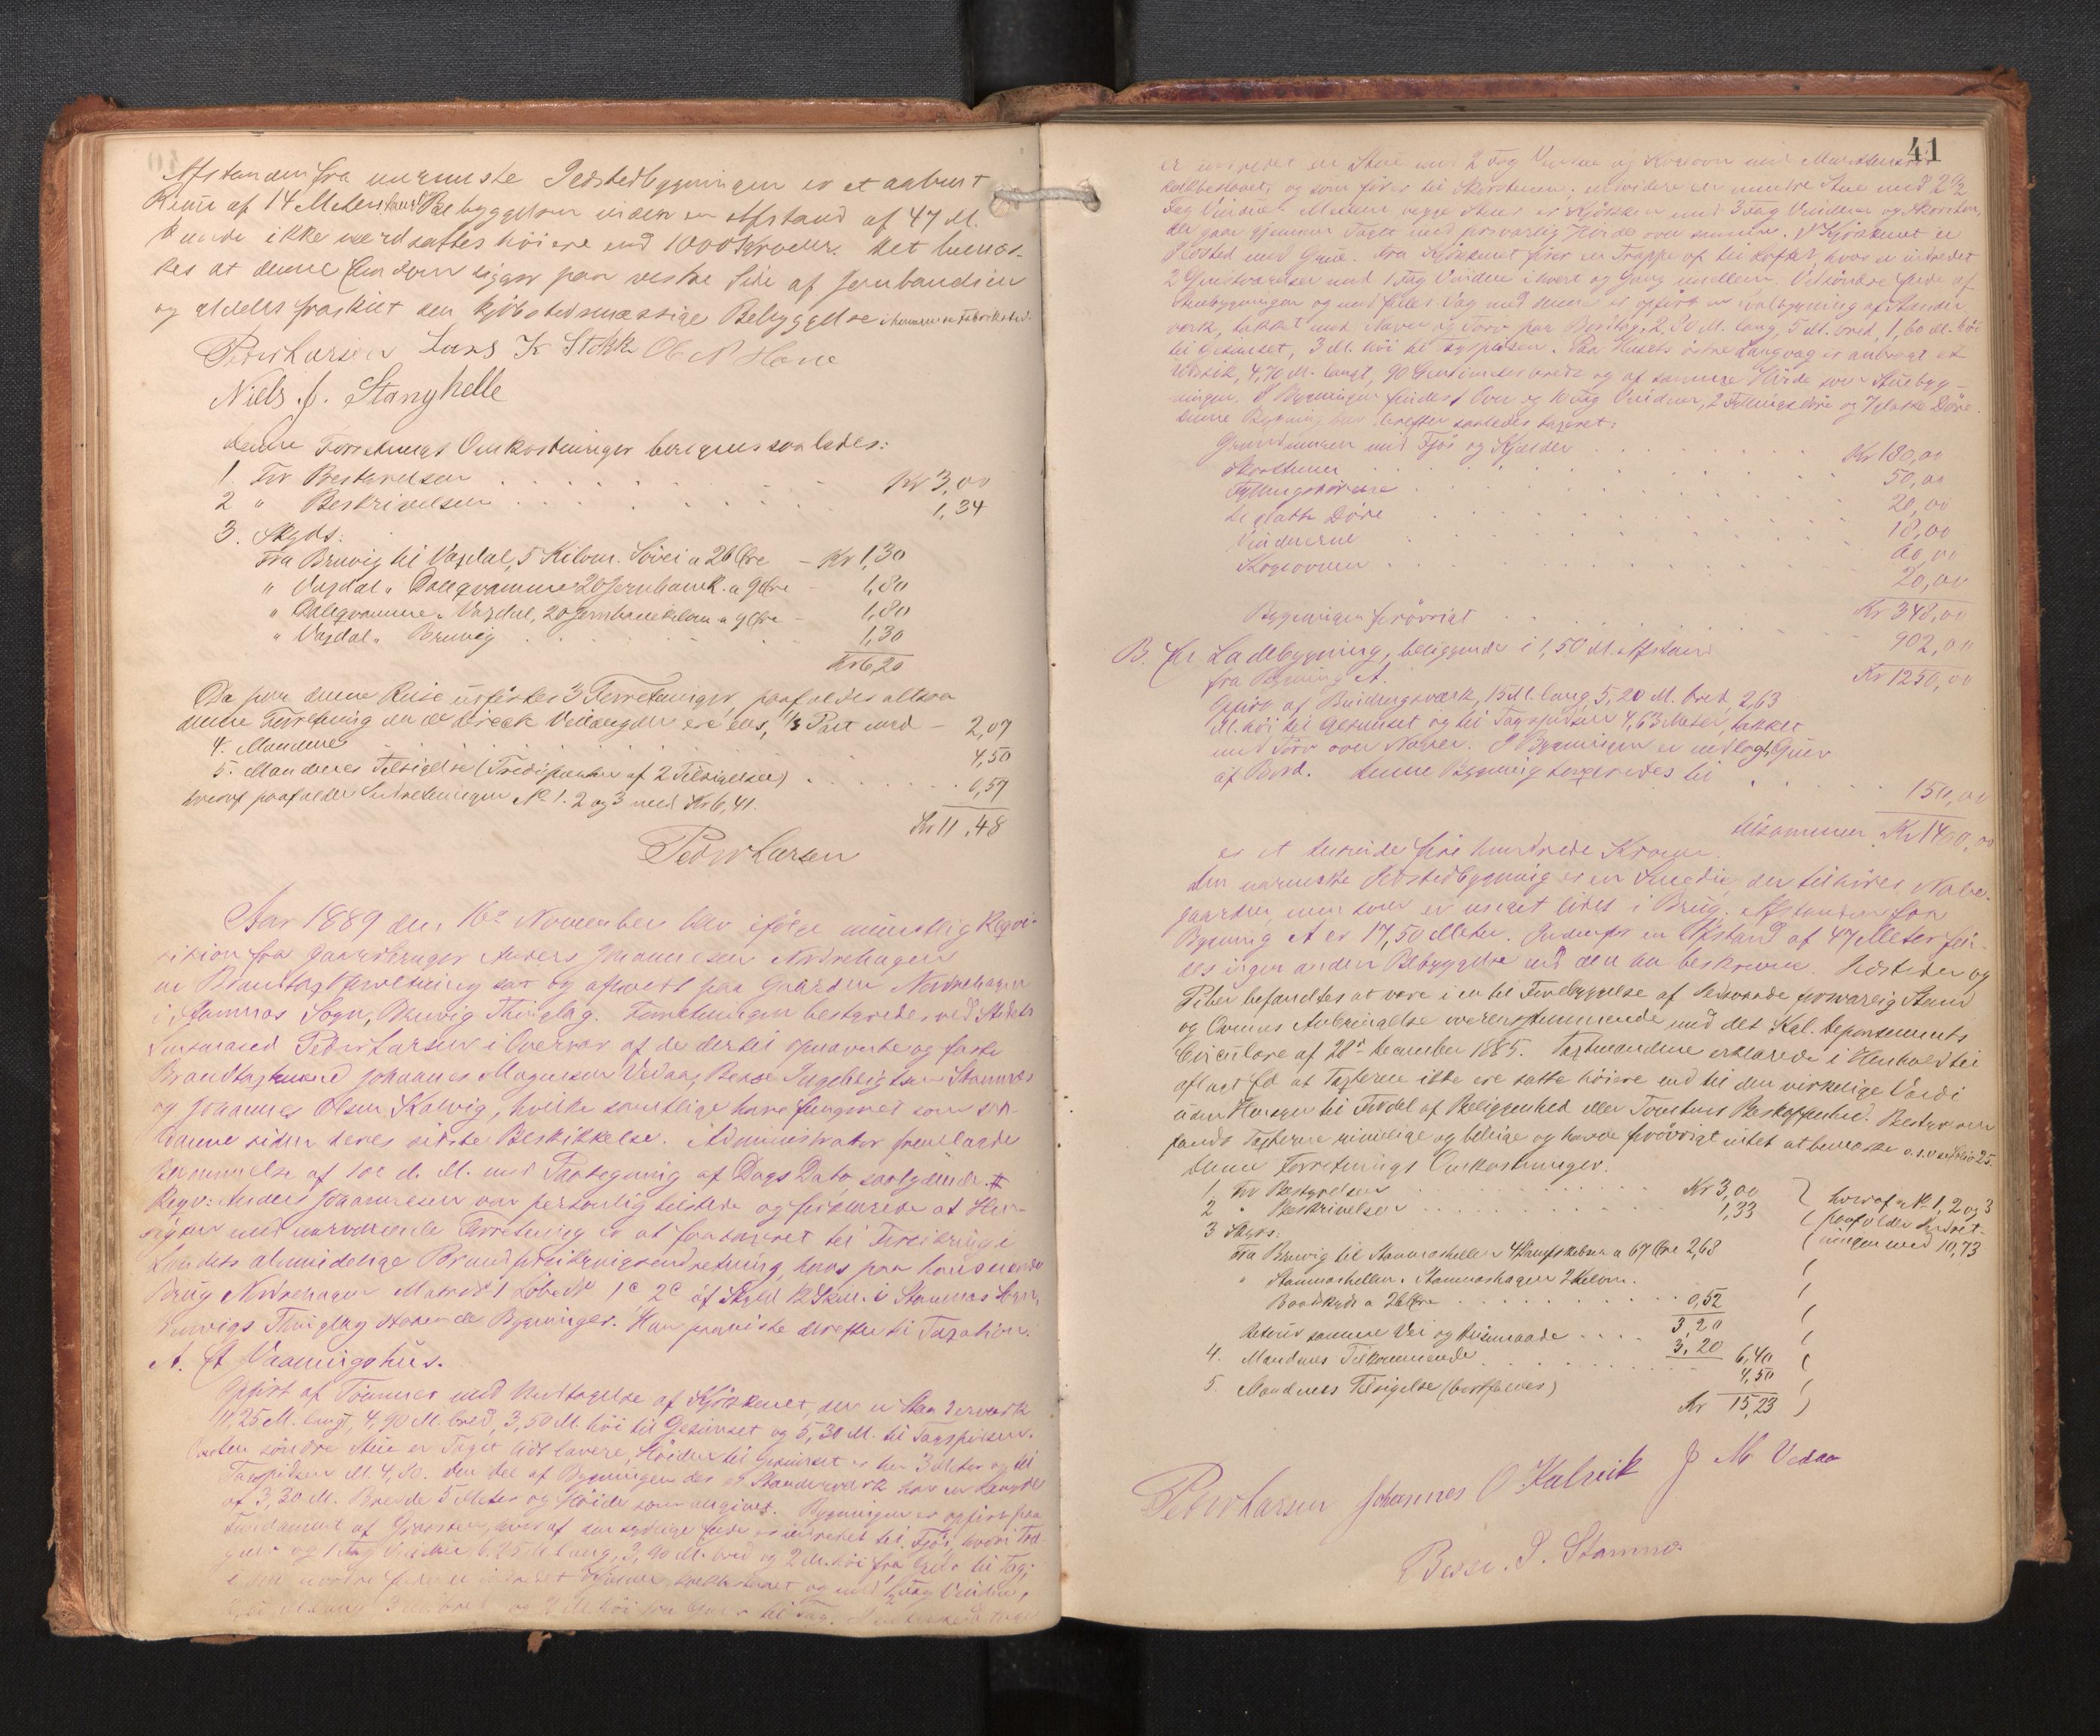 Afstanden fra nærmeste Ildstedbygningen er et aabent
Rum af 14 Meter, samt Bebyggelsen inden en Afstand af 47 M.
kunde ikke værdsattes höiere end 1000 Kroner. Det bemær-
kes at denne Eiendom ligger paa vestre Side af Jernbanelinien
og aldeles fraskilt den kjöbstedsmæssige Bebyggelse
Peder Larsen Lars K Stokke Ole N Hove
Niels J. Stanghelle
Denne Forretnings Omkostninger beregnes saaledes:
1. For Bestyrelsen Kr 3,00
2 " Beskrivelsen 1,34
3. Skyds:
Fra Bruvig til Vaxdal, 5 Kilom. Sövei a 26 Öre – Kr 1,30
" Vaxdal " Dalegvamme 20 Jernbanek. a 9 Öre – 1,80
" Dalegvamme " Vaxdal, 20 Jernbanekilom a 9 Öre – 1,80
" Vaxdal " Bruvig 1,30
Kr 6,20
Da paa denne Reise udförtes 3 Forretninger, paafaldes altsaa
denne Forretning da de direkte Veilængder ere ens, 1/3 Part med – 2,07
4. Mændene 4,50
5. Mændenes Tilsigelse (Trediparten af 2 Tilsigelser) 0,57
hvoraf paafalder Indretningen No 1. 2 og 3 med Kr 6,41.
Kr 11,48
Peder Larsen
Aar 1889 den 16de November blev ifölge mundtlig Reqvi-
sition fra Gaardbruger Anders Johannesen Nordrehagen
en Brandtaxtforretning sat og afholdt paa Gaarden Nordrehagen
i Stamnæs Sogn, Bruvig Thinglag. Forretningen bestyredes ved Stedets
Lensmand Peder Larsen i Overvær af de dertil opnævnte og faste
Brandtaxtmænd Johannes Magnesen Vedaa, Besse Ingebrigtsen Stamnæs
og Johannes Olsen Kalvig, hvilke samtlige have fungeret som saa-
danne siden deres sidste Beskikkelse. Administrator fremlagde
Berammelse af 10e d. M. med Paategning af Dags Dato saalydende #
Reqv: Anders Johannesen var personlig tilstede og forklarede at Hen-
sigten med nærværende Forretning er at faa taxeret til Forsikring i
Landets almindelige Brandforsikringsindretning, hans paa hans eiende
Brug Nordrehagen Matr No 1 Löbe No 1c 2c af Skyld 12 Skill. i Stamnæs Sogn,
Bruvigs Thinglag staaende Bygninger. Han paaviste derefter til Taxation:
A. Et Vaaningshus.
Opfört af Tömmer med Undtagelse af Kjökkenet, der er Standerværk
11,25 M. langt, 4,90 M. bred, 3,50 M. höi til Gesimset og 5,30 M. til Tagspidsen.
Over den söndre Stue er Taget lidt lavere, Höiden til Gesimset er her 3 Meter og til
Tagspidsen M. 4,80. Den Del af Bygningen der er Standerværk har en Længde
af 3,30 M. Brede 5 Meter og Höide som angivet. Bygningen er opfört paa
Fundament af Graasten, hvoraf den sydlige Ende er indrettet til Fjös, hvori Træ-
gulv og 1 Fag Vindue, 6,25 M. lang, 3,90 M. bred og 2 M. höi fra Gulv til Tag;
41
er indredet en Stue med 2 Fag Vinduer og Kogeovn med
og som förer til Skorstenen, endvidere en mindre Stue med 2 1/2
Fag Vinduer. Mellem begge Stuer er Kjökken med 3 Fag Vinduer og Skorsten,
der gaar gjennem Taget med forsvarlig Höide over samme. I Kjökkenet er
Ildsted med Grue. Fra Kjökkenet förer en Trappe op til Loftet, hvor er indredet
2 Gjæsteværelser med 1 Fag Vindue i hvert og Gang imellem. Ved söndre Ende af
Stuebygningen og med fælles Tag med denne er opfört en Tilbygning af Stander-
værk, tækket med Næver og Torv paa Bordtag, 2,20 M. lang, 5 M. bred, 1,60 M. höi
til Gesimset, 3 M. höi til Tagspidsen. Paa Husets östre Langvæg er anbragt et
Udstik, 4,70 M. langt, 90 Centimeter bredt og af samme Höide som Stuebyg-
ningen. I Bygningen findes 1 Ovn og 10 Fag Vinduer, 2 Fyldingsdöre og 7 glatte Döre.
Denne Bygning blev derefter saaledes taxeret:
Grundmuren med Fjös og Kjælder Kr 180,00
Skorstenen 50,00
Fyldingsdörene 20,00
De glatte Döre 18,00
Vinduerne 60,00
Kogeovnen 20,00
Kr 348,00
Bygningen forövrigt 902,00
Kr 1250,00
B. En Ladebygning, beliggende i 1,50 M. Afstand
fra Bygning A.
Opfört af Bindingsværk, 15 M. lang, 5,20 M. bred, 2,63
M. höi til Gesimset og til Tagspidsen 4,63 Meter, tækket
med Torv over Næver. I Bygningen er indlagt Gulv
af Bord. Denne Bygning taxeredes til 150,00
tilsammen Kr 1400,00
er et tusinde fire hundrede Kroner.
Den nærmeste Ildstedbygning er en Smedie, der tilhörer Nabo-
gaarden, men som er meget lidet i Brug. Afstanden fra
Bygning A er 17,50 Meter. Indenfor en Afstand af 47 Meter fin-
des ingen anden Bebyggelse end den nu beskrevne. Ildsteder og
Piber befandtes at være i en til Forebyggelse af Ildsvaade forsvarlig Stand
og Ovnens Anbringelse overensstemmende med det Kgl. Departements
Circulære af 28de December 1885. Taxtmændene erklærede i Henhold til
aflagt Ed at Taxterne ikke ere satte höiere end til den virkelige Værdi
uden Hensyn til Fordel af Beliggenhed eller Tomtens Beskaffenhed. Bestyreren
fandt Taxterne rimelige og billige og havde forövrigt intet at bemærke
Denne Forretnings Omkostninger.
1. For Bestyrelsen Kr 3,00
2 " Beskrivelsen 1,33
hvoraf No 1, 2 og 3
paafalder Indret-
ningen med 10,73
3 Skyds:
Fra Bruvig til Stamnæshellen 4 Dampskibsm a 67 Öre 2,68
" Stamnæshellen " Stamnæshagen 2 Kilom.
Baadskyds a 26 Öre 0,52
3,20
Retour samme Vei og Reisemaade 3,20 6,40
4. Mændenes Tilkommende 4,50
5. Mændenes Tilsigelse (bortfalder)
Kr 15,23
Peder Larsen Johannes O Kalvik J M Vedaa
Besse. I. Stamnes